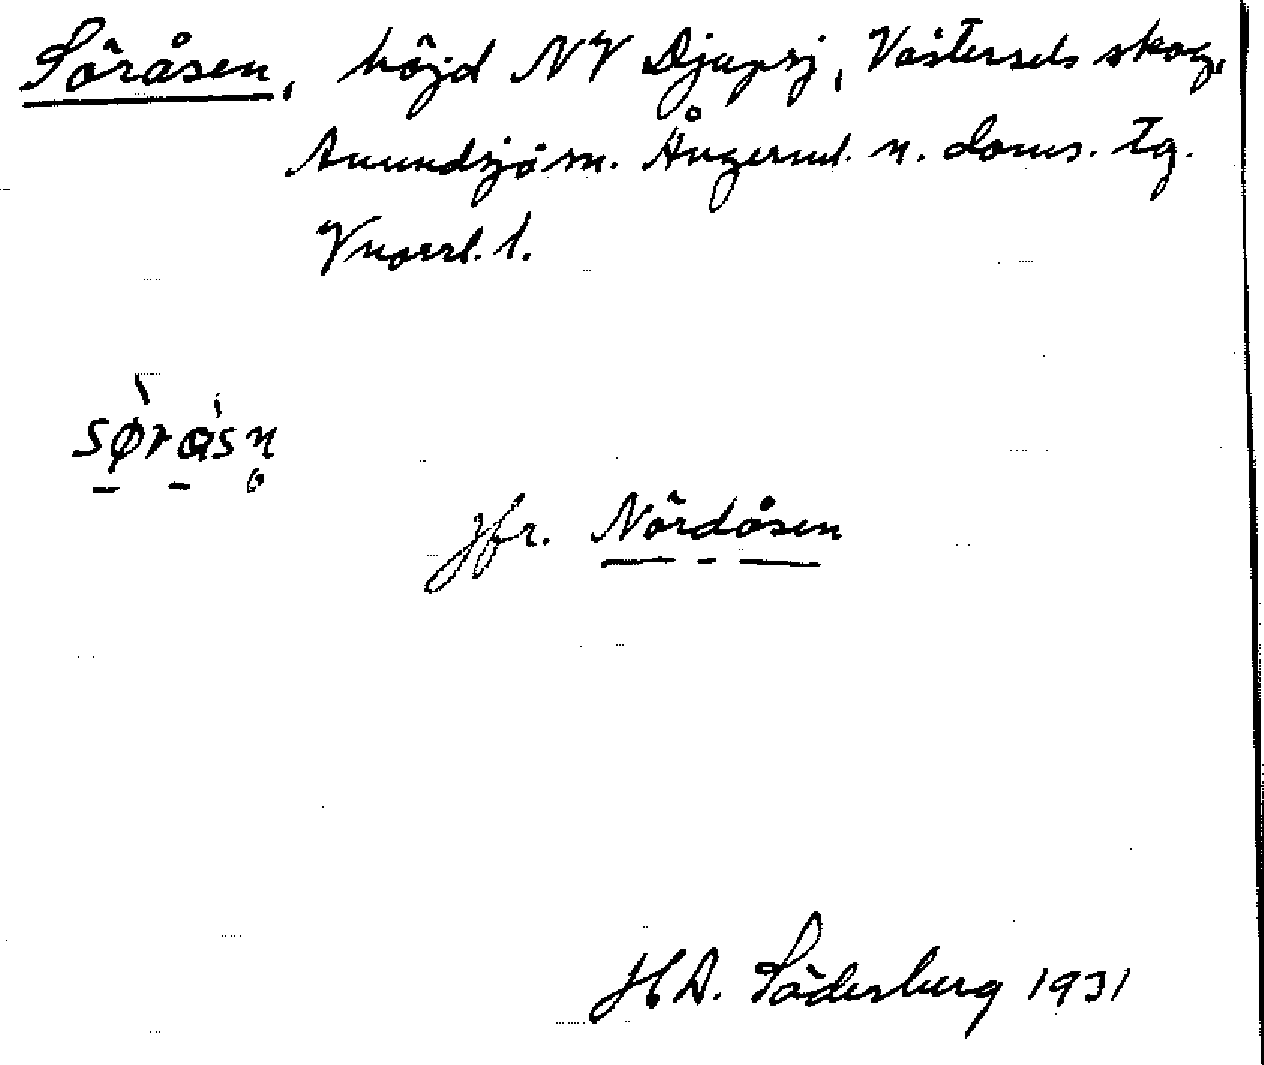 Söråsen, höjd NV Djupsj, Västersels skog,
Anundsjö sn. Ångerml. n. doms. tg.
Vnorrl. l.
sø̀rɑ̀sn̥
Jfr. Nördåsen
H A. Söderberg 1931